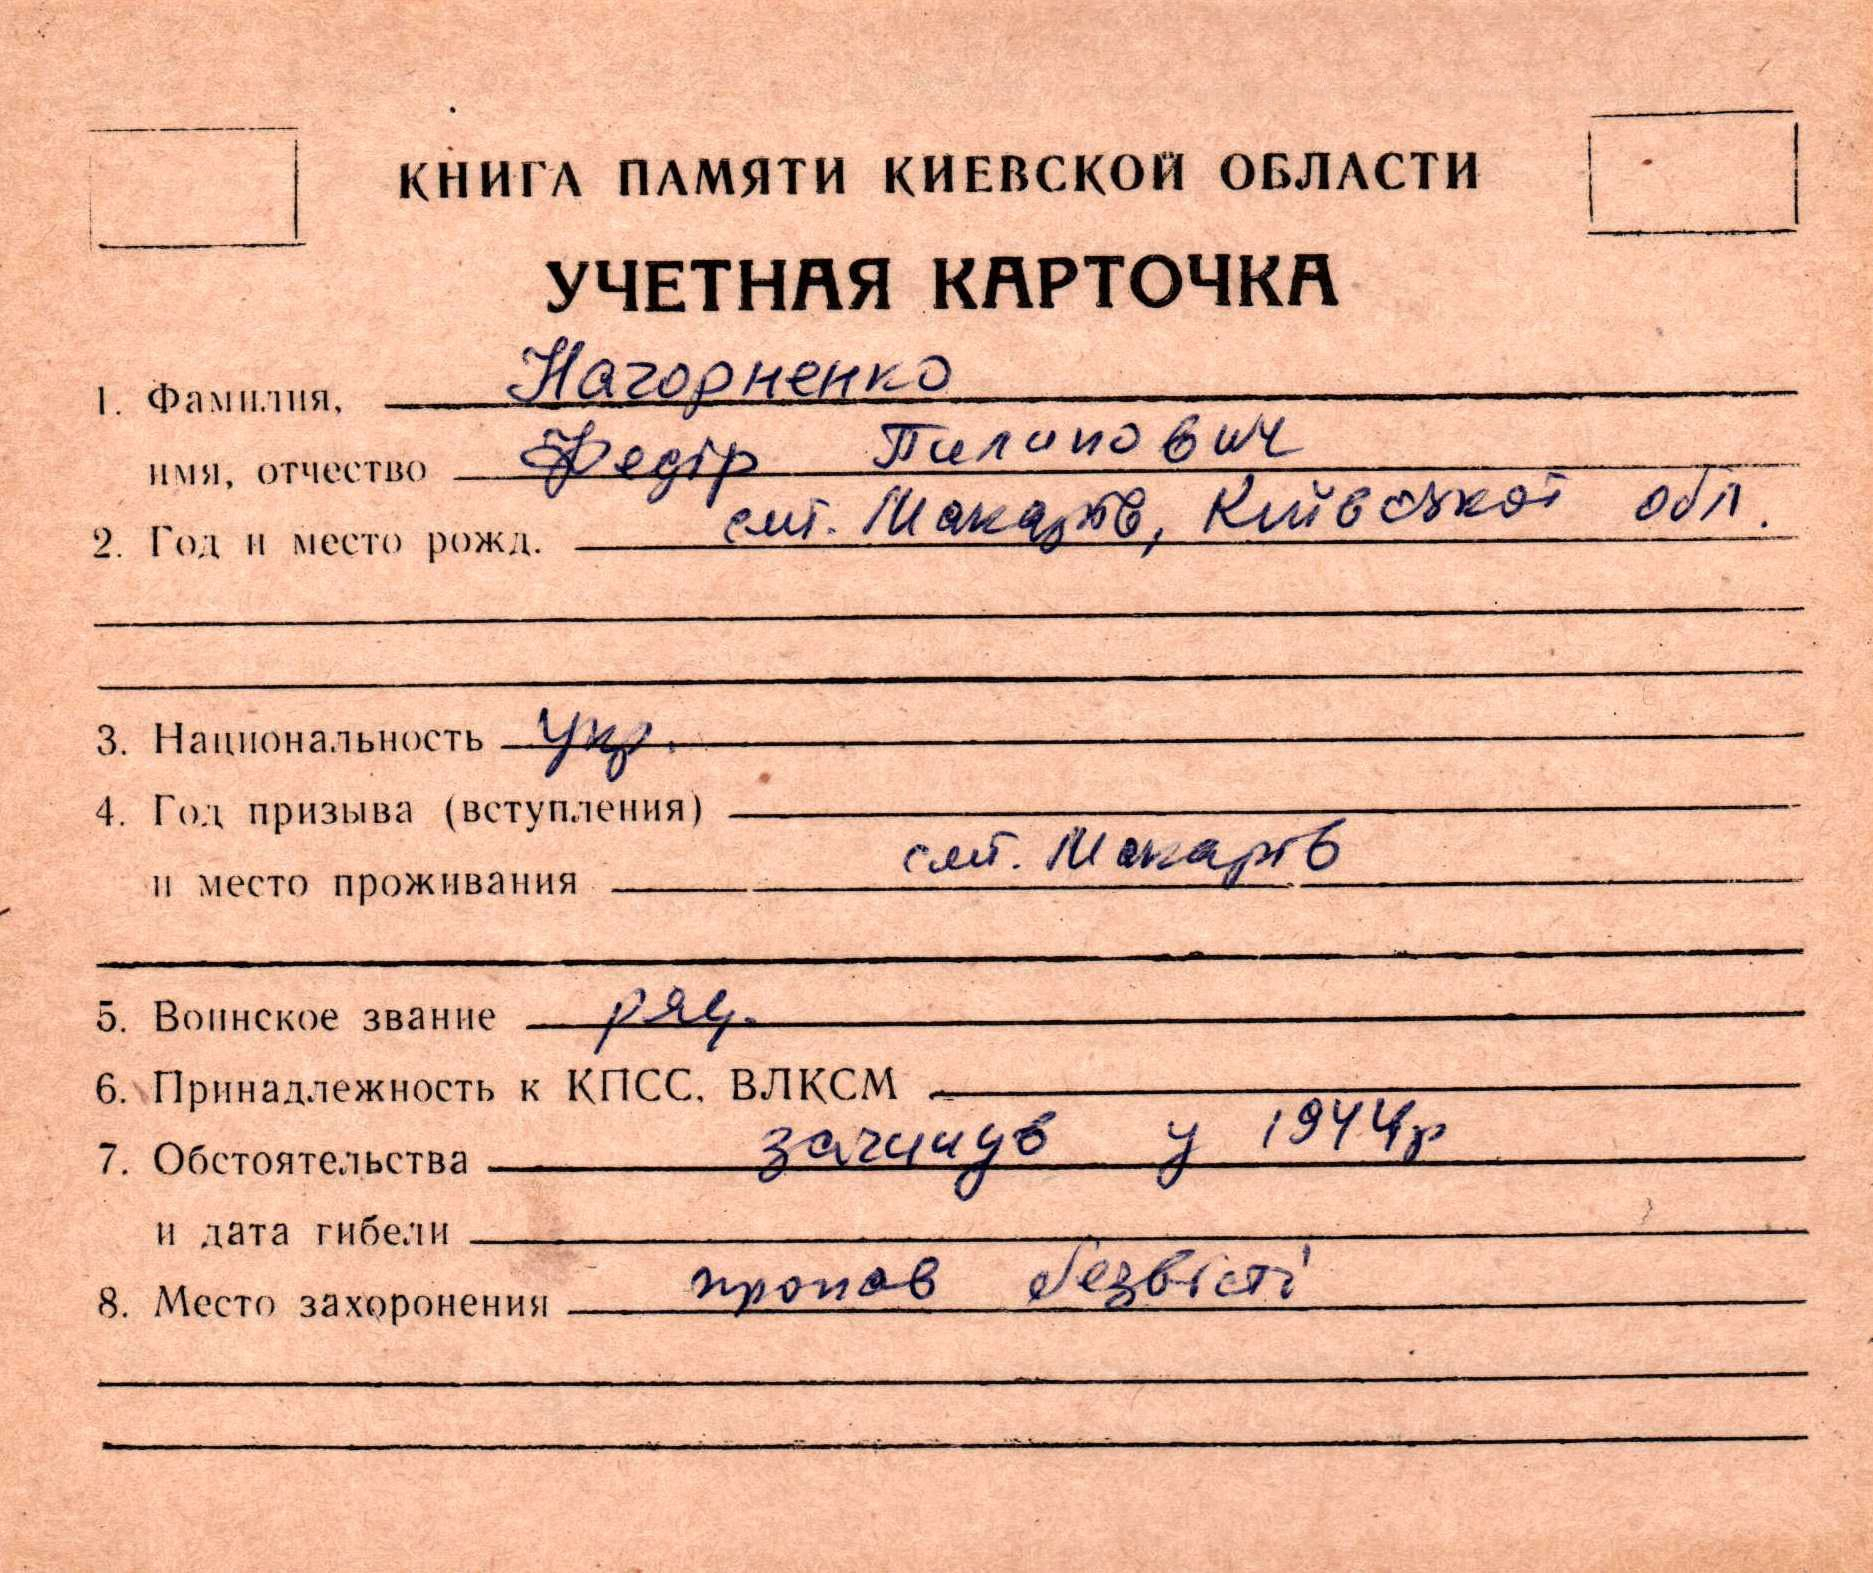 КНИГА ПАМЯТИ КИЕВСКОЙ ОБЛАСТИ
УЧЕТНАЯ КАРТОЧКА
1. Фамилия, Нагорненко
имя, отчество Федір Пилипович
2. Год и место рожд. смт. Макарів, Київської обл.
3. Национальность укр.
4. Год призыва (вступления)
и место проживания смт. Макарів
5. Воинское звание ряд.
6. Принадлежность к КПСС, ВЛКСМ
7. Обстоятельства загинув у 1944р
и дата гибели
8. Место захоронения пропав безвісті